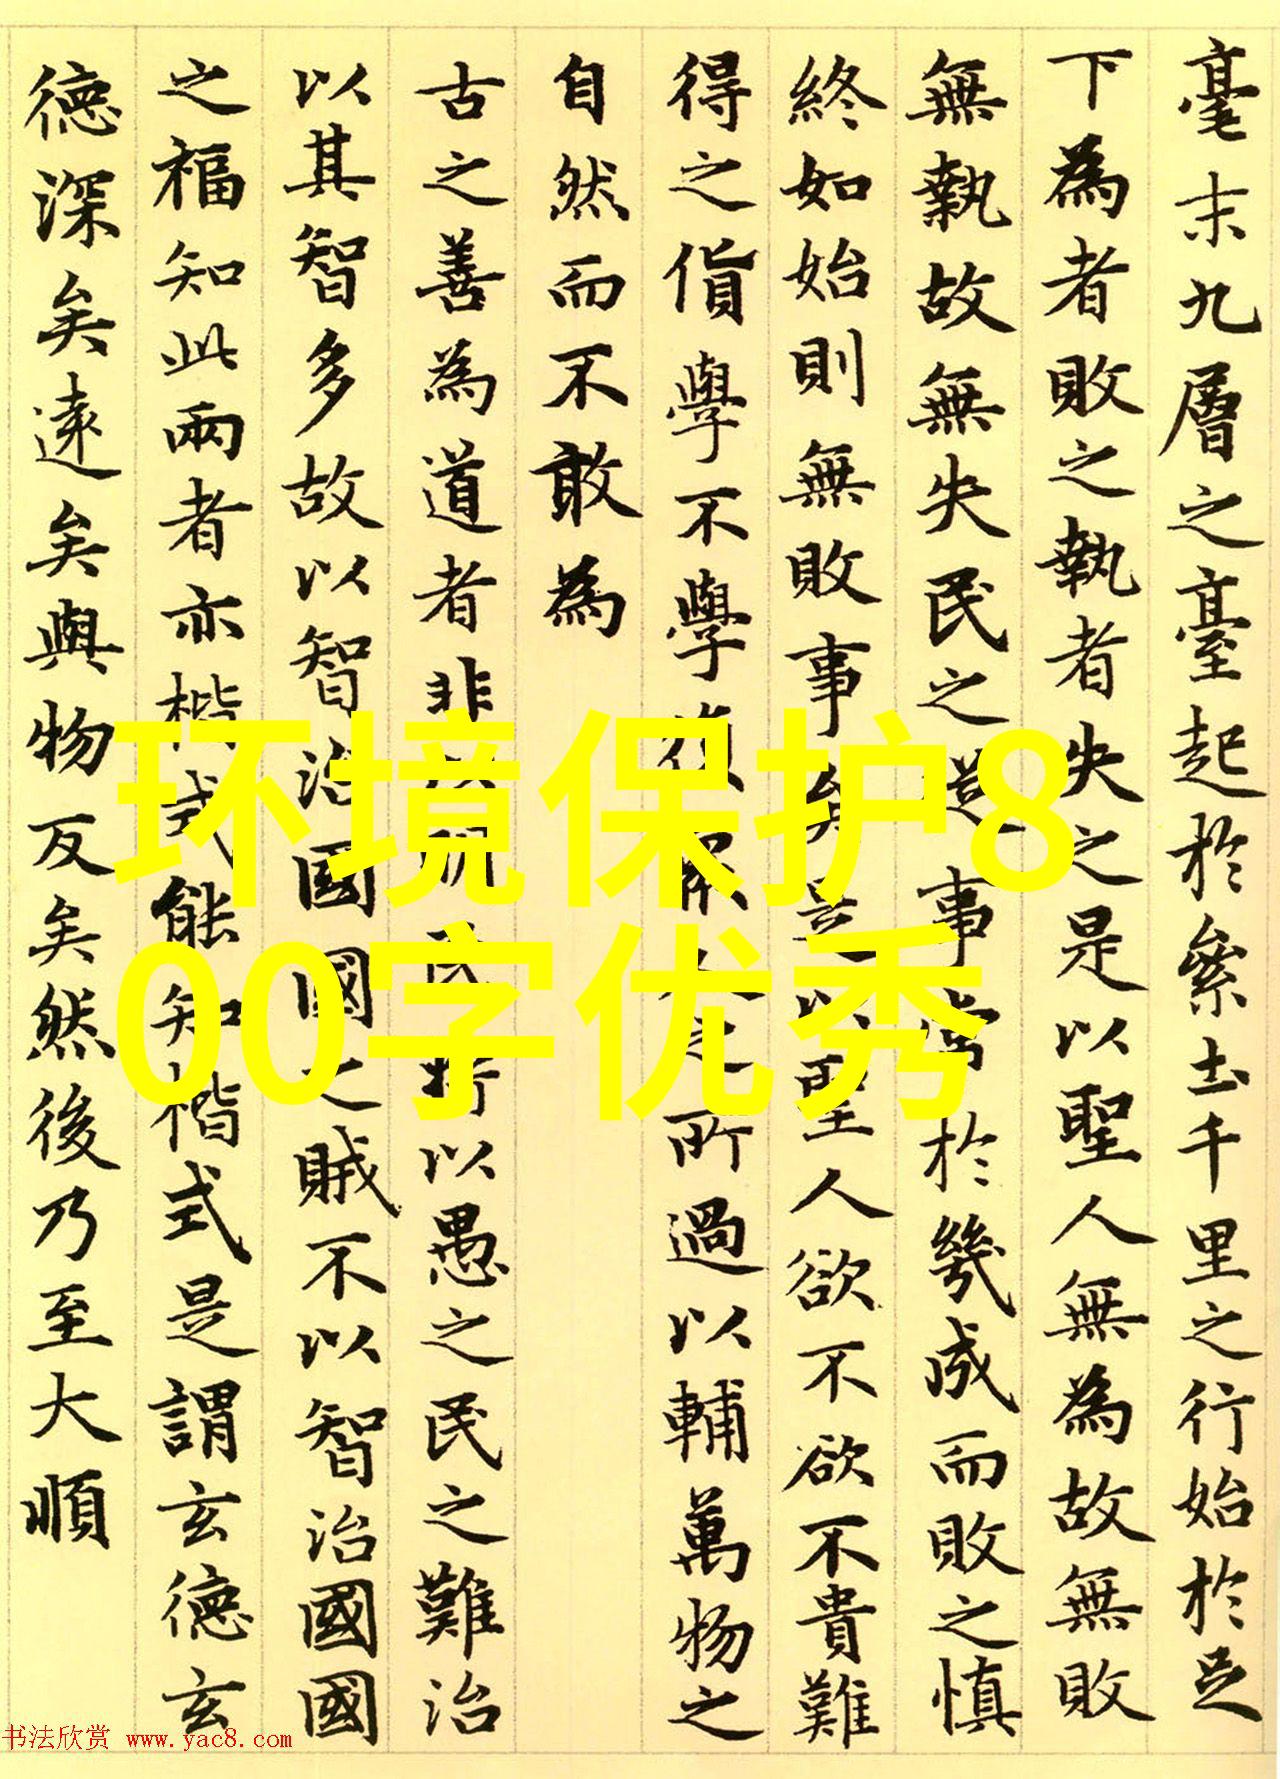 毫末九層之臺起於絫土千里之行始於足
下為者敗之執者失之是以聖人無為故無敗
無執故無失民之從事常於幾成而敗之慎
終如始則無敗事矣是以聖人欲不欲不貴難
得之貨學不學復眾人之所過以輔萬物之
自然而不敢為
古之善為道者非以明民將以愚之民之難治
以其智多故以智治國國之賊不以智治國國
之福知此兩者亦楷式能知楷式是謂玄德玄
德深矣遠矣與物反矣然後乃至大順
环境保护8
00字优秀
书法欣赏 www.yac8.com